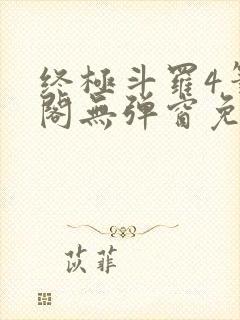 终極斗羅4笔
閣無弹窗免
苡菲